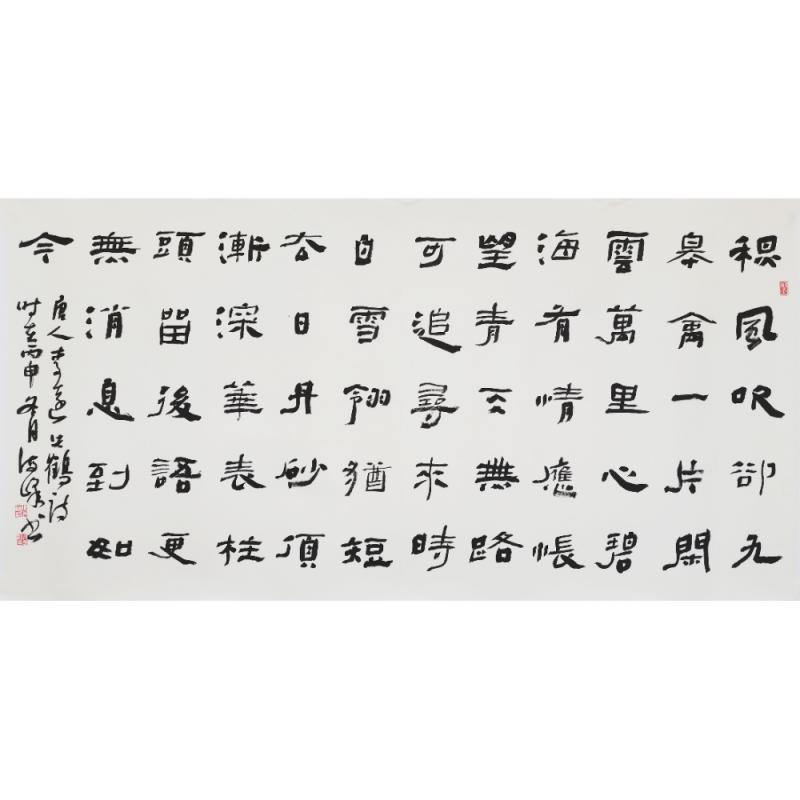 秋風吹卻九
皋禽一片閑
雲萬里心碧
海有情應悵
望青天無路
可追尋來時
白雪翎猶短
去日丹砂頂
漸深華表柱
頭留後語更
無消息到如
今
唐人李遠失鶴詩
时在丙申冬月峰书